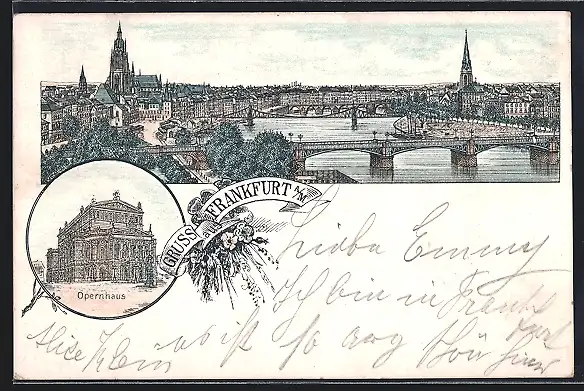 GRUSS a. FRANKFURT a/M
Opernhaus
Liebe Emmy
Ich bin in Frank
furt
es ist so arg schön hier
Alice Klein